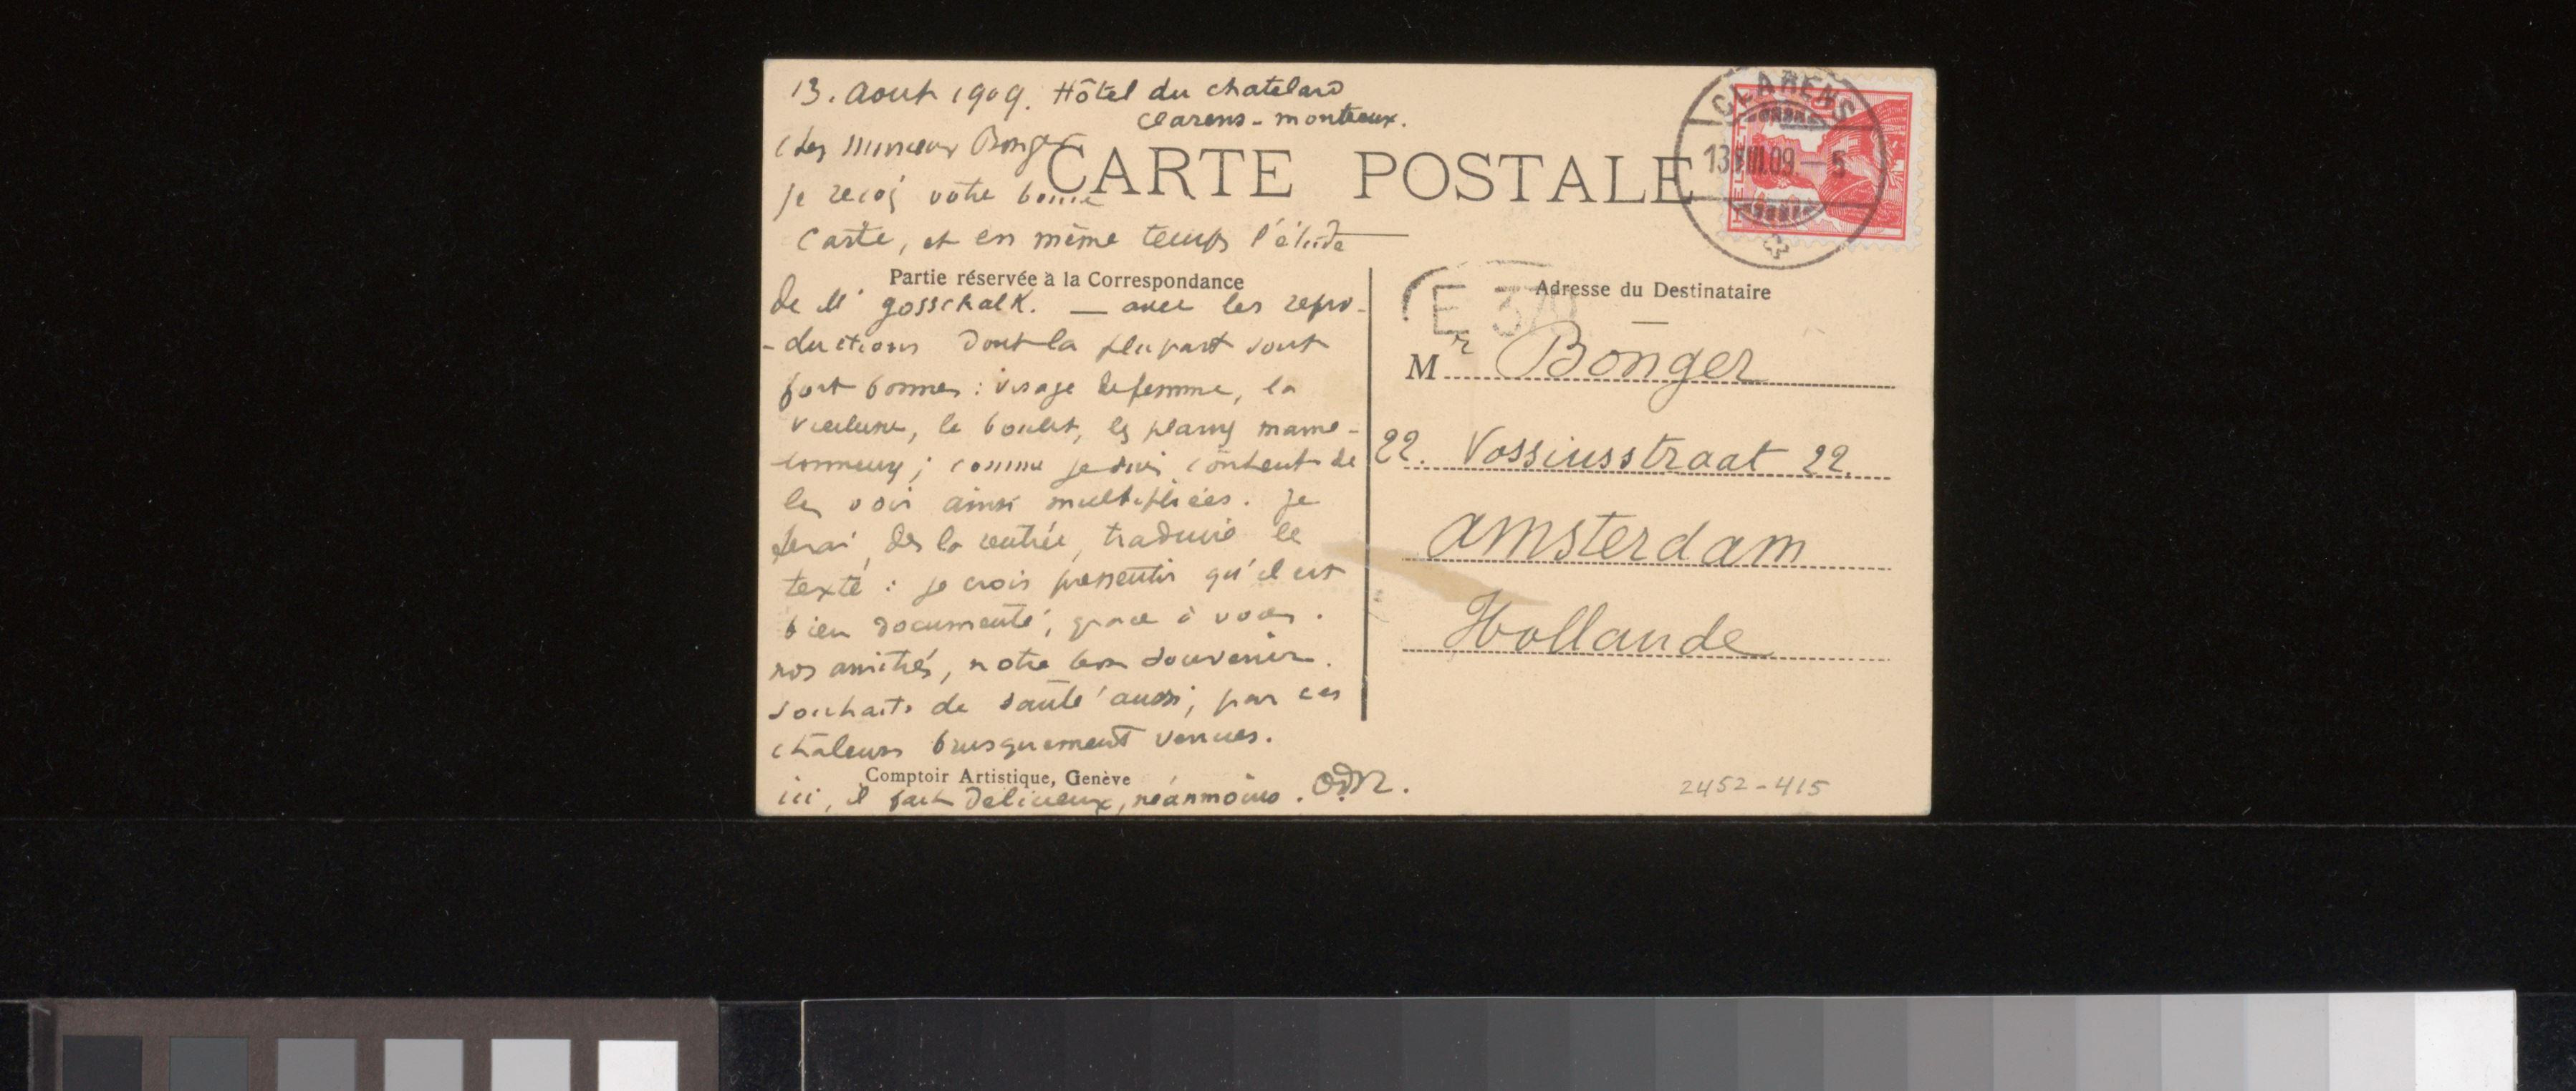 13. Aout 1909. Hôtel du chatelard
Clarens - montreux.
Cher Monsieur Bonger
CARTE POSTALE
je reçois votre bonne
Carte, et en même temps l'étude
Partie réservée à la Correspondance
de Mr gosschalk. — avec les repro-
-ductions dont la plupart sont
fort bonnes : visage de femme, la
le boulet, les mame-
; comme je suis content de
les voir ainsi multipliées. je
ferai, des la rentrée, traduire le
texte : je crois pressentir qu'il est
bien documenté, grace à vous.
nos amitiés, notre bon souvenir.
souhaits de santé aussi, par ces
chaleurs brusquement venues.
Comptoir Artistique, Genève
ici, il fait delicieux, néanmoins. OdR.
CLARENS
13.VIII.09.-5
HELVETIA
E 370
Adresse du Destinataire
Mr Bonger
22. Vossiusstraat 22.
Amsterdam
Hollande
2452-415